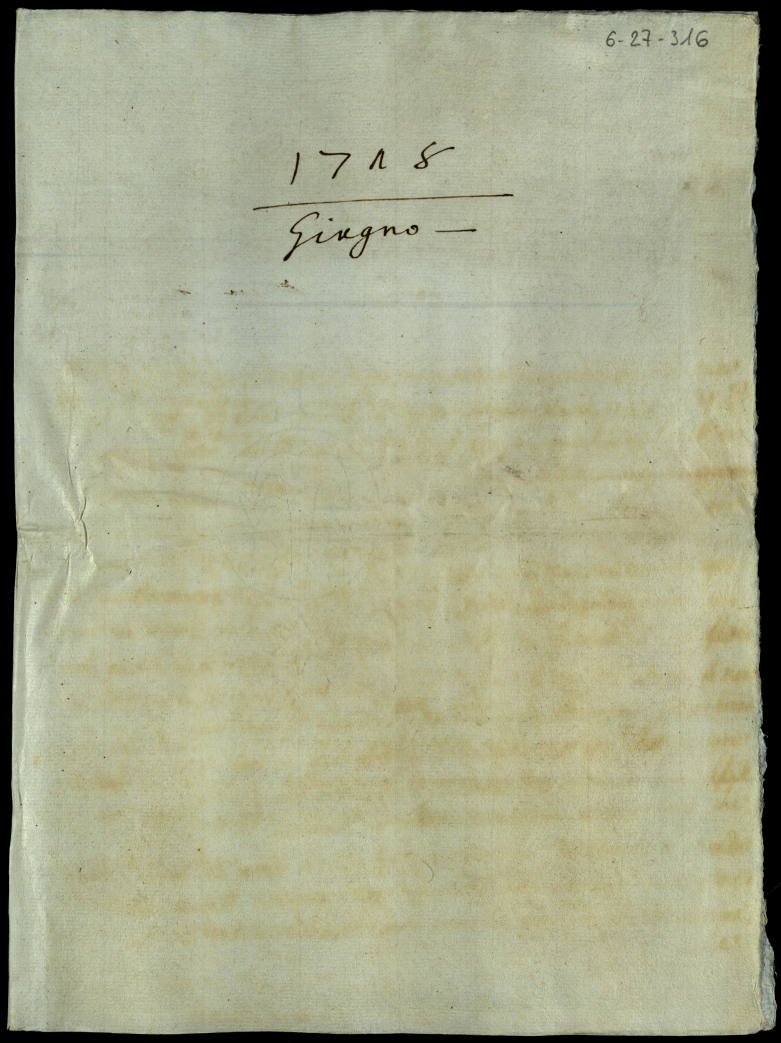 6-27-316
1718
Giugno —